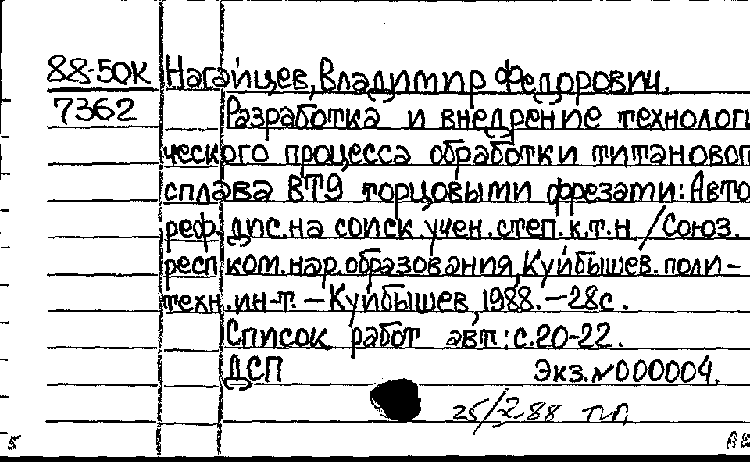 88-50К Нагайцев, Владимир Федорович.
7362 Разработка и внедрение технологи
ческого процесса обработки титановог
сплава ВТ9 торцовыми фрезами: Авто
реф. дис. на соиск. учен. степ. к.т.н. / Союз.
респ ком. нар. образования, Куйбышев. поли-
техн. ин-т. - Куйбышев, 1988. - 28с.
Список работ авт.: с.20-22.
ДСП Экз.№000004.